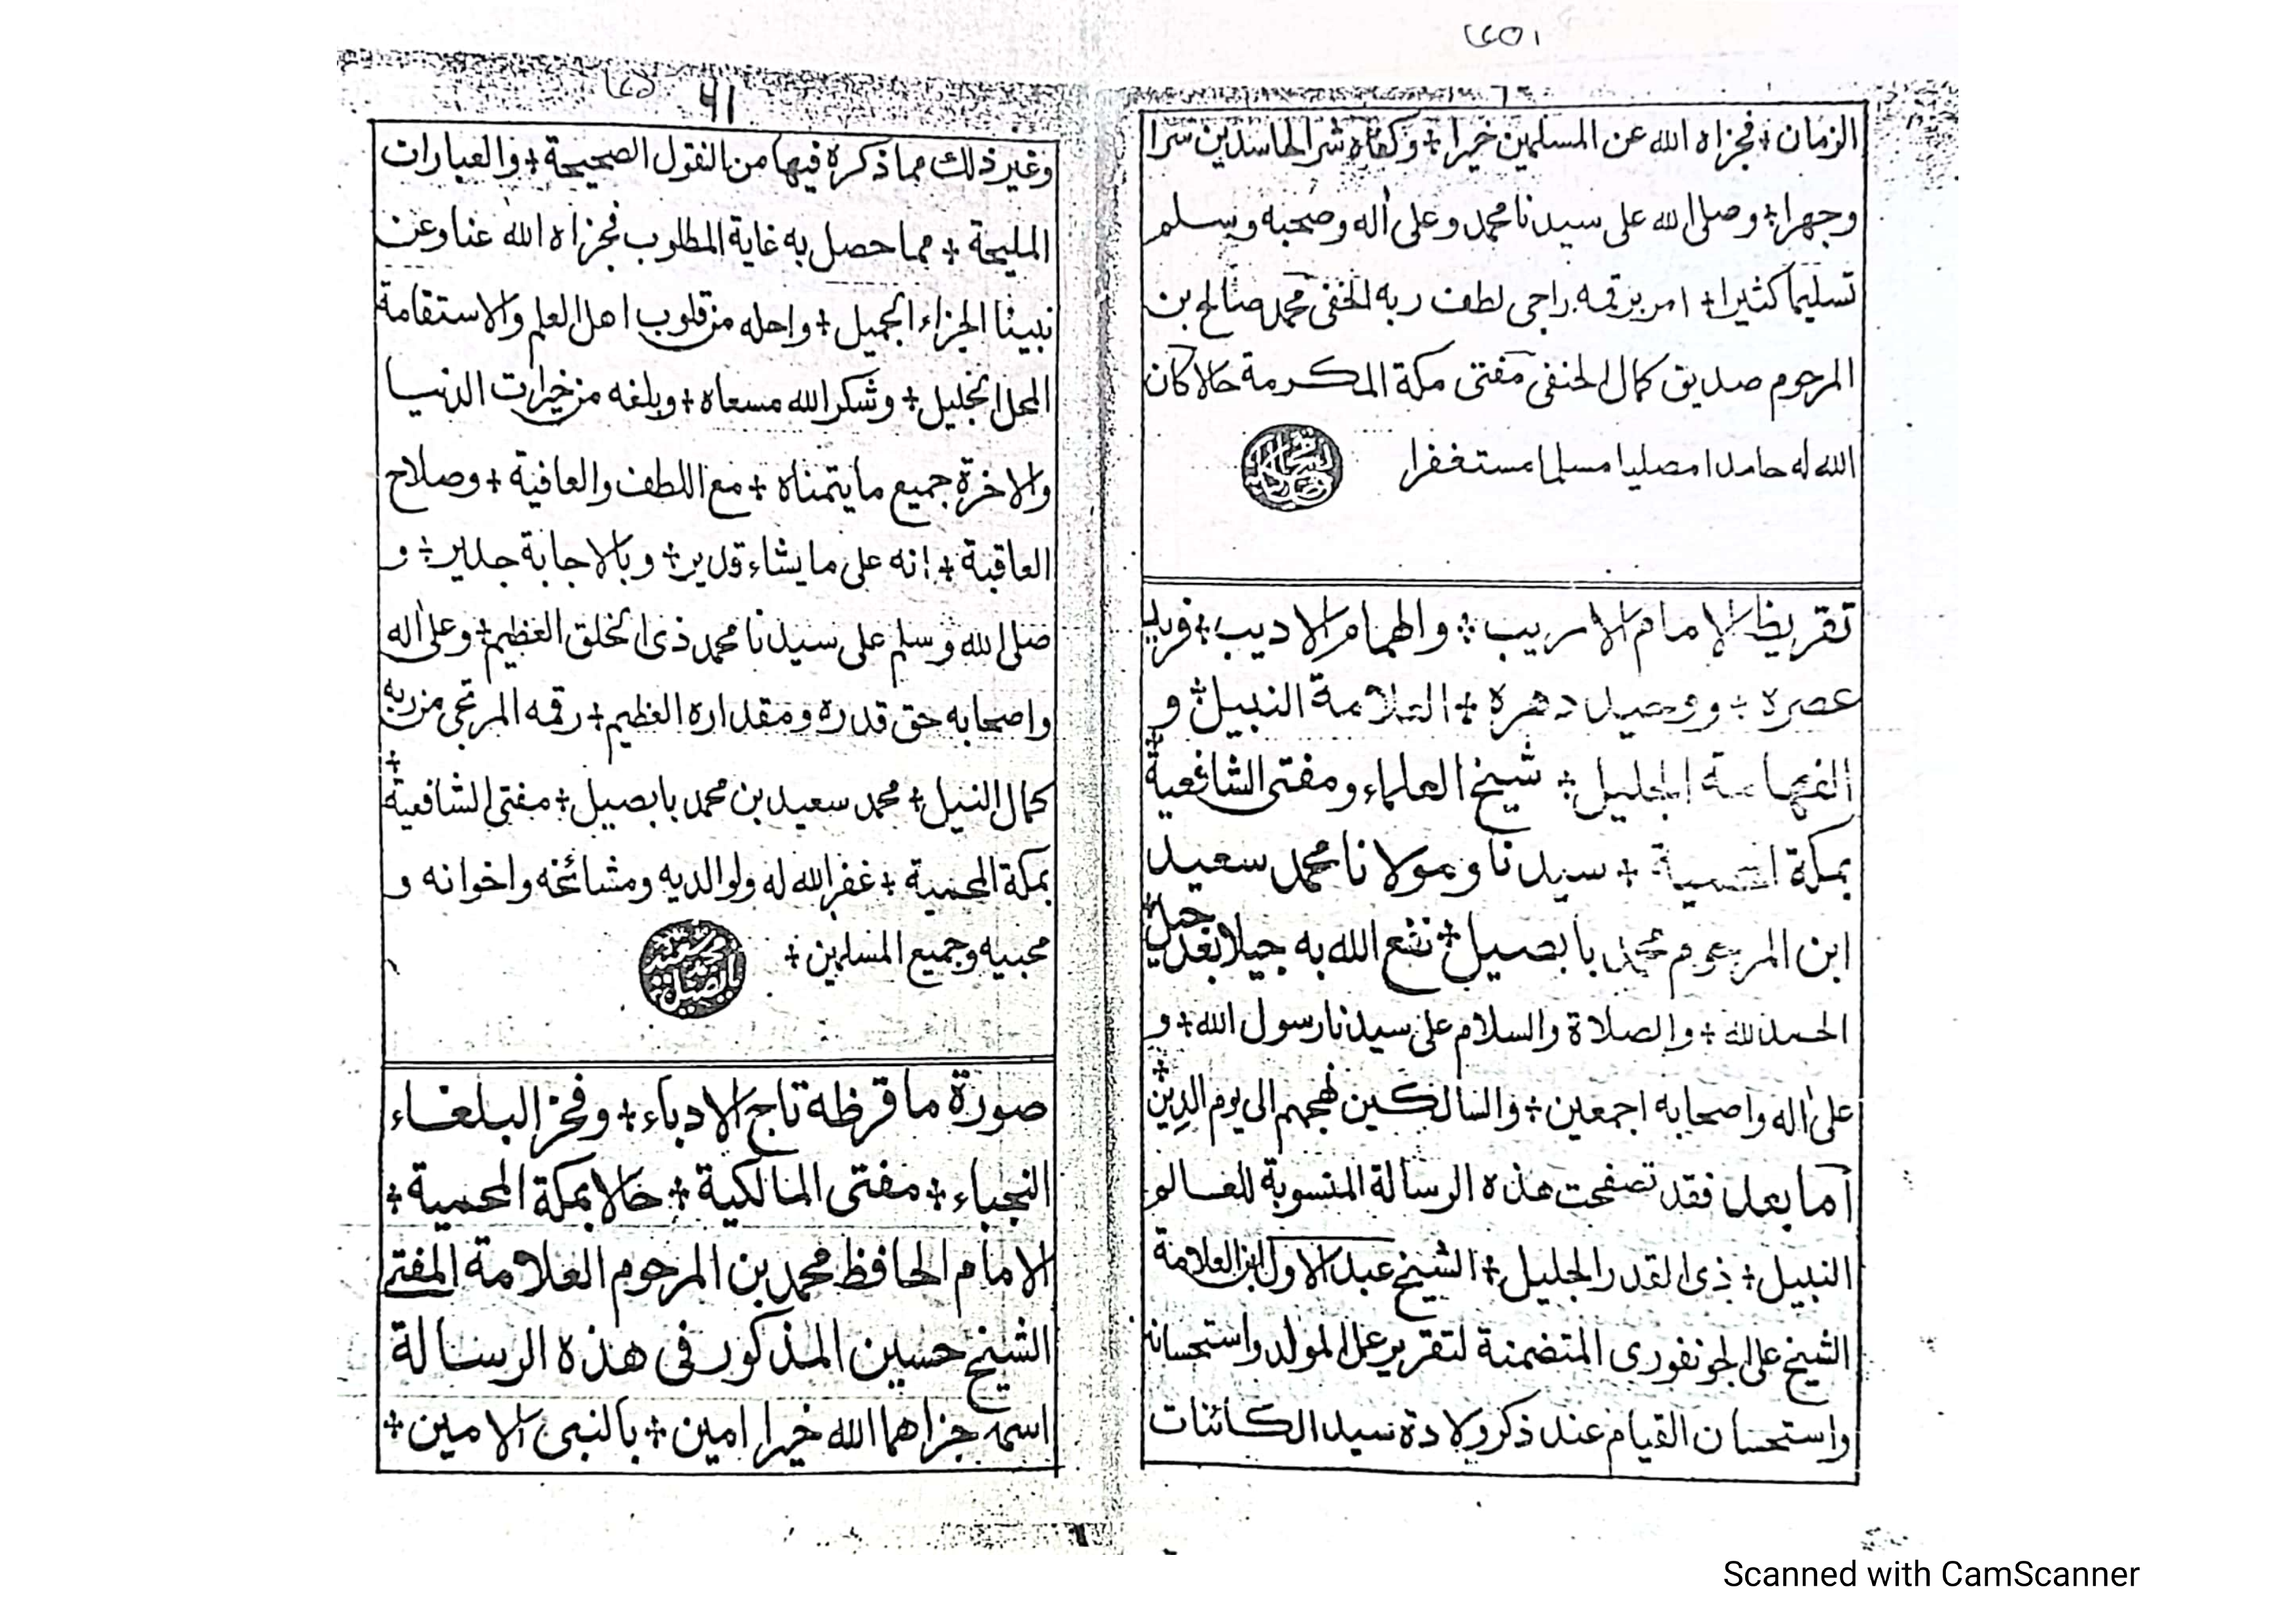 الزمان + فجزاه الله عن المسلمين خيرا + وكفاه شر الحاسدين سرا
وجهرا + وصلى الله على سيدنا محمد وعلى أله وصحبه وسلم
تسليما كثيرا + امر برقمه راجى لطف ربه الخفى محمد صالح بن
المرحوم صديق كمال الحنفى مفتى مكة المكرمة حالا كان
الله له حامدا مصليا مسلما مستغفرا
تقريظ الامام الاريب + والهمام الاديب + فريد
عصره + ووحيد دهره + العلامة النبيل + و
الفهامة الجليل + شيخ العلماء ومفتى الشافعية +
بمكة المحمية + سيدنا ومولانا محمد سعيد
ابن المرحوم محمد بابصيل + نفع الله به جيلا بعد جيل +
الحمد لله + والصلاة والسلام على سيدنا رسول الله + و
على أله واصحابه اجمعين + والسالكين نهجهم الى يوم الدين +
أما بعد فقد تصفحت هذه الرسالة المنسوبة للعالم
النبيل + ذى القدر الجليل + الشيخ عبد الاول ابن العلامة
الشيخ على الجونفورى المتضمنة لتقرير عمل المولد واستحسانه
واستحسان القيام عند ذكر ولادة سيد الكائنات
٦١
وغير ذلك مما ذكره فيها من النقول الصحيحة + والعبارات
المليحة + مما حصل به غاية المطلوب فجزاه الله عنا وعن
نبينا الجزاء الجميل + واحله من قلوب اهل العلم والاستقامة
المحل الجليل + وشكر الله مسعاه + وبلغه من خيرات الدنيا
والاخرة جميع ما يتمناه + مع اللطف والعافية + وصلاح
العاقبة + انه على ما يشاء قدير + وبالاجابة جدير + و
صلى الله وسلم على سيدنا محمد ذى الخلق العظيم + وعلى أله
واصحابه حق قدره ومقداره العظيم + رقمه المرتجى من ربه
كمال النيل + محمد سعيد بن محمد بابصيل + مفتى الشافعية +
بمكة المحمية + غفر الله له ولوالديه ومشائخه واخوانه و
محبيه وجميع المسلمين +
محمد سعيد بابصيل
صورة ما قرظه تاج الادباء + وفخر البلغاء
النجباء + مفتى المالكية + حالا بمكة المحمية +
الامام الحافظ محمد بن المرحوم العلامة المفتى
الشيخ حسين المذكور فى هذه الرسالة
اسمه جزاهما الله خيرا امين + بالنبى الامين +
Scanned with CamScanner